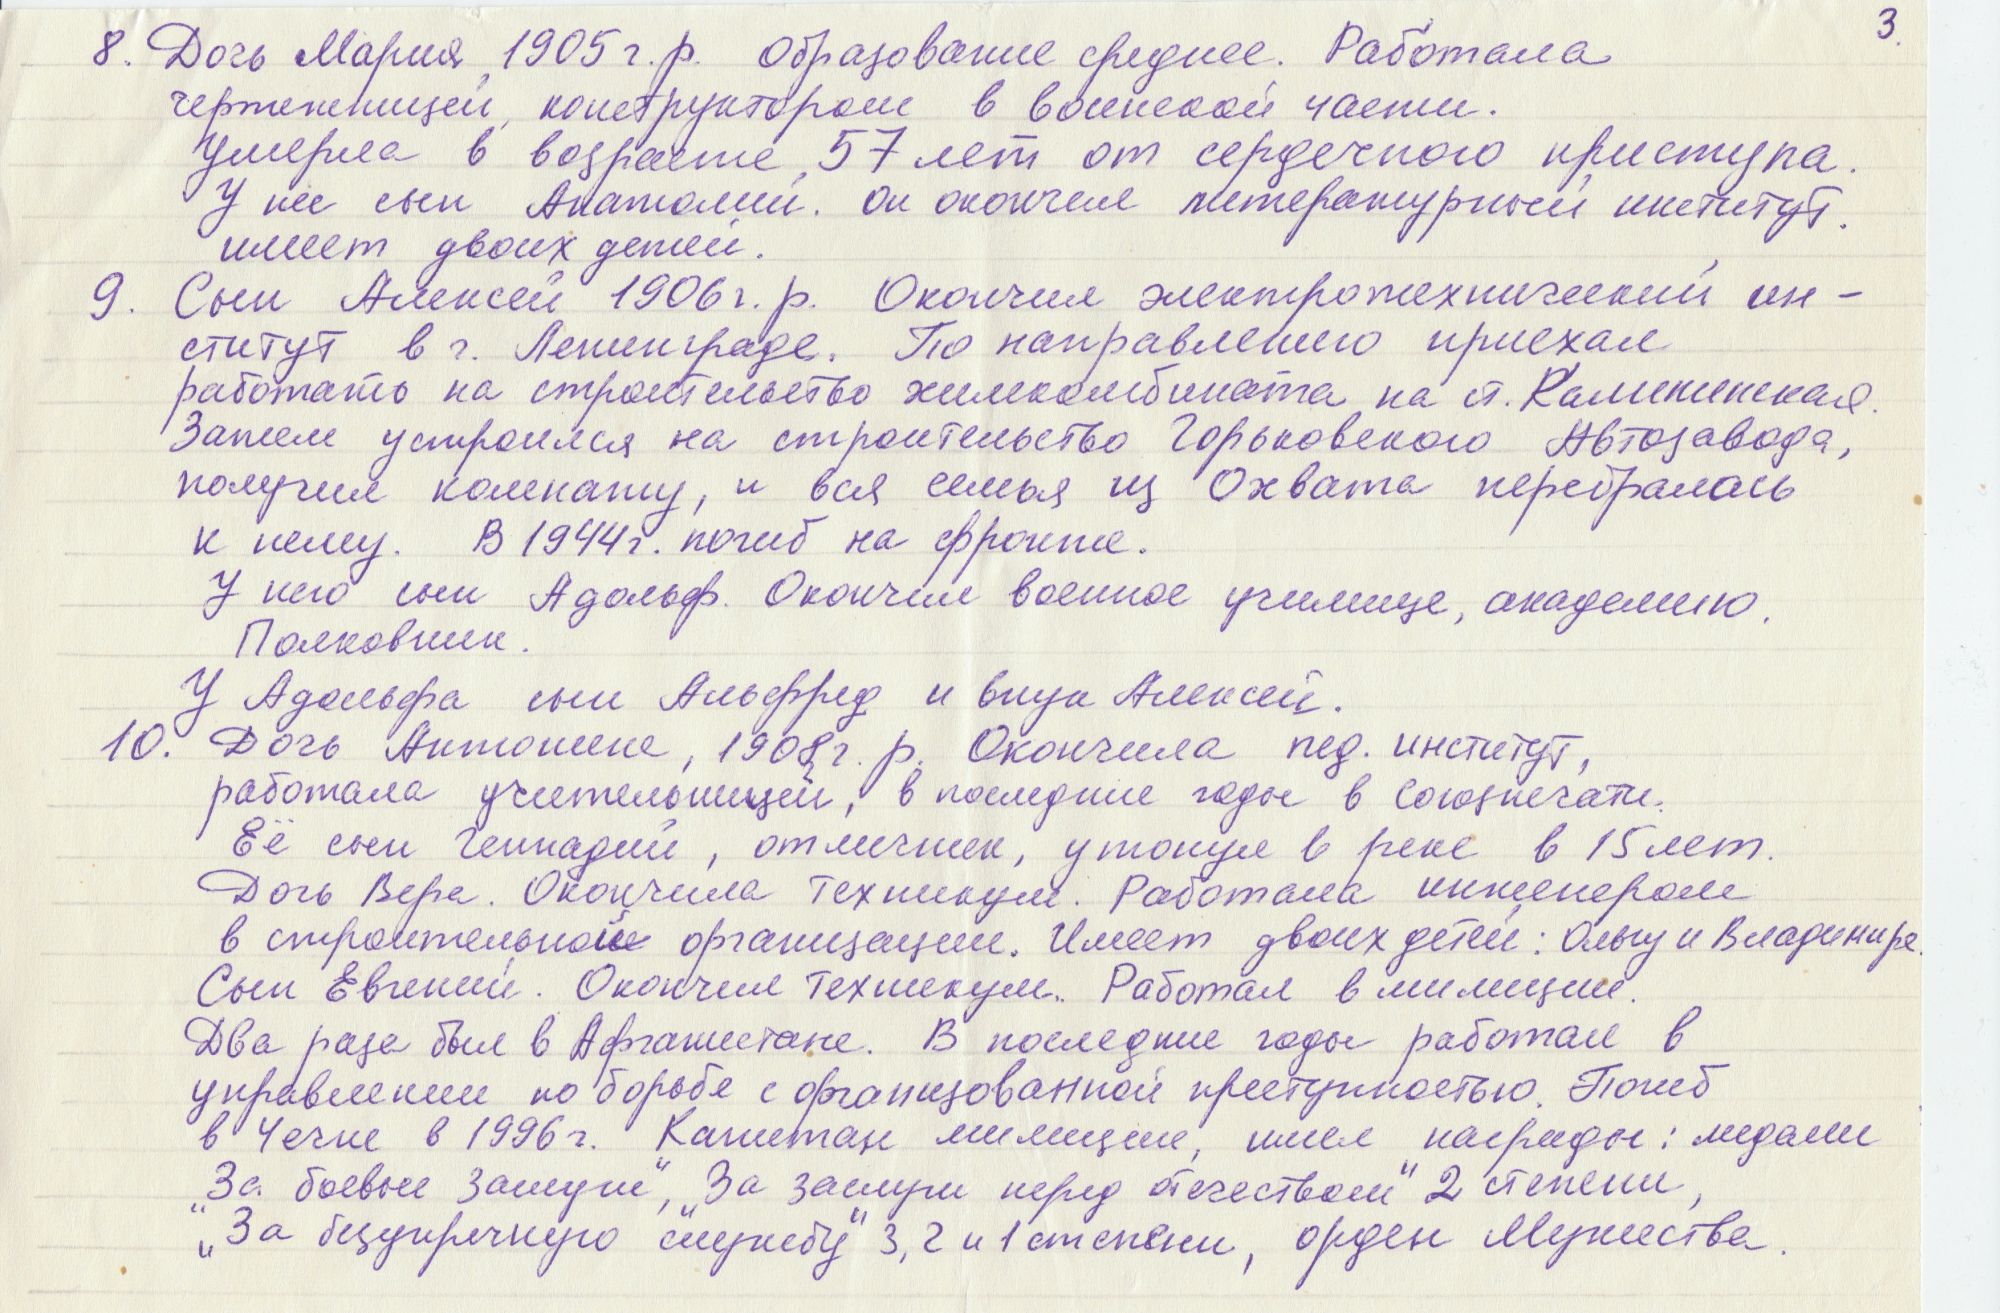 3.
8. Дочь Мария, 1905 г.р. Образование среднее. Работала
чертежницей, конструктором в воинской части.
Умерла в возрасте 57 лет от сердечного приступа.
У нее сын Анатолий. Он окончил литературный институт.
имеет двоих детей.
9. Сын Алексей 1906 г.р. Окончил электротехнический ин-
ститут в г. Ленинграде. По направлению приехал
работать на строительство химкомбината на ст. Калининская.
Затем устроился на строительство Горьковского Автозавода,
получил комнату, и вся семья из Охвата перебралась
к нему. В 1944 г. погиб на фронте.
У него сын Адольф. Окончил военное училище, академию.
Полковник.
У Адольфа сын Альфред и внук Алексей.
10. Дочь Антонина, 1908 г.р. Окончила пед. институт,
работала учительницей, в последние годы в Союзпечати.
Её сын Геннадий, отличник, утонул в реке в 15 лет.
Дочь Вера. Окончила техникум. Работала инженером
в строительной организации. Имеет двоих детей: Ольгу и Владимира.
Сын Евгений. Окончил техникум. Работал в милиции.
Два раза был в Афганистане. В последние годы работал в
управлении по борьбе с организованной преступностью. Погиб
в Чечне в 1996 г. Капитан милиции, имел награды: медали
„За боевые заслуги", „За заслуги перед отечеством" 2 степени,
„За безупречную службу" 3, 2 и 1 степени, орден Мужества.